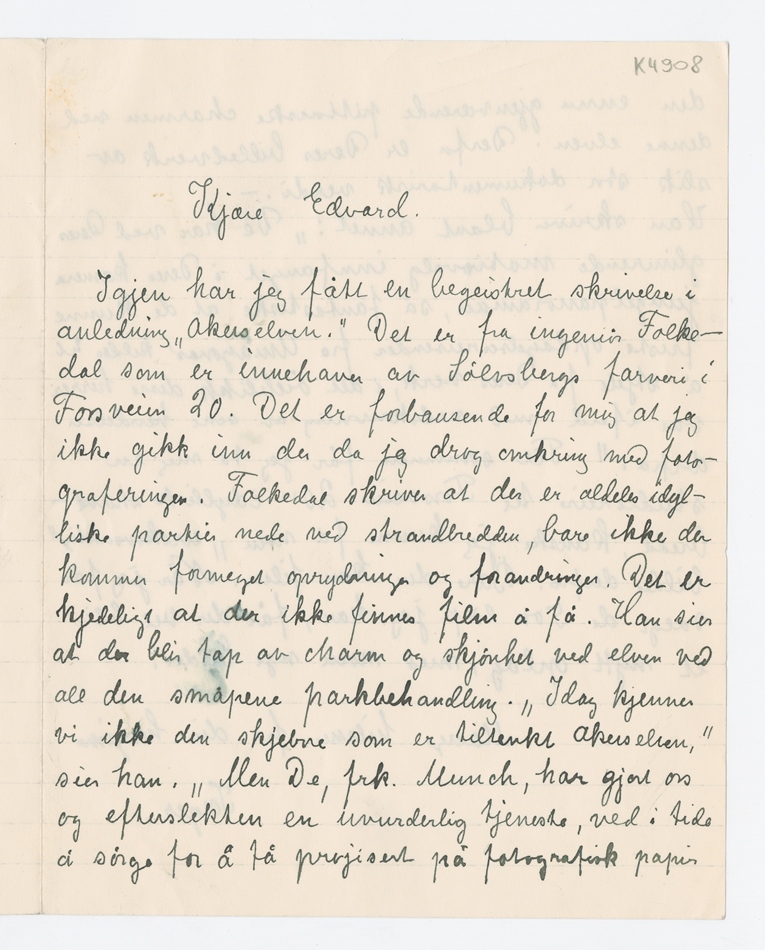 K4908
Kjære Edvard.
Igjen har jeg fått en begeistret skrivelse i
anledning „Akerselven." Det er fra ingeniør Folke-
dal som er innehaver av Sølvsbergs farveri i
Fossveien 20. Det er forbausende for mig at jeg
ikke gikk inn der da jeg drog omkring med foto-
graferingen. Folkedal skriver at der er aldeles idyl-
liske partier nede ved strandbredden, bare ikke der
kommer formeget oprydninger og forandringer. Det er
kjedeligt at der ikke finnes film å få. Han sier
at der blir tap av charm og skjønhet ved elven ved
all den småpene parkbehandling. „Idag kjenner
vi ikke den skjebne som er tiltenkt Akerselven,"
sier han. „Men De, frk. Munch, har gjort oss
og efterslekten en uvurderlig tjeneste, ved i tide
å sørge for å få projisert på fotografisk papir